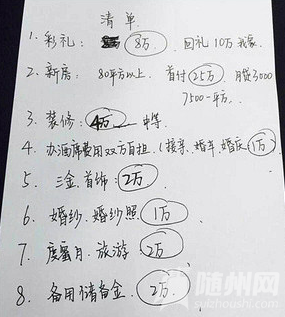 清单
1. 彩礼: 8万 回礼10万我家
2. 新房: 80平方以上. 首付25万 月贷3000
7500一平方.
3. 装修: 4万 中等.
4. 办酒席费用双方自担.(接亲、婚车、婚庆1万
5. 三金.首饰: 2万
6. 婚纱.婚纱照 1万
7. 度蜜月.旅游 2万
8. 备用储备金. 2万
随州网
suizhoushi.com